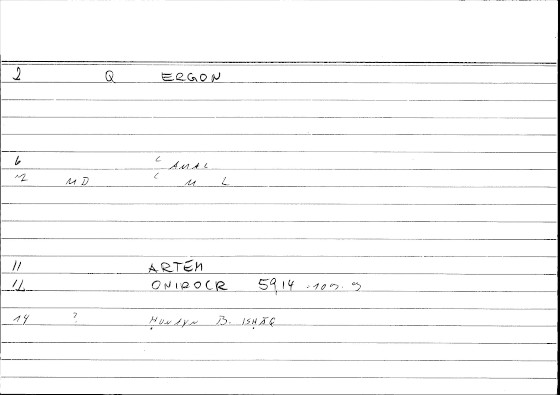 2 Q ERGON
6 ʿAMAL
MD ʿM L
11 ARTÉM
12 ONIROCR 59,14
14 ? ḤUNAYN B. ISḤĀQ